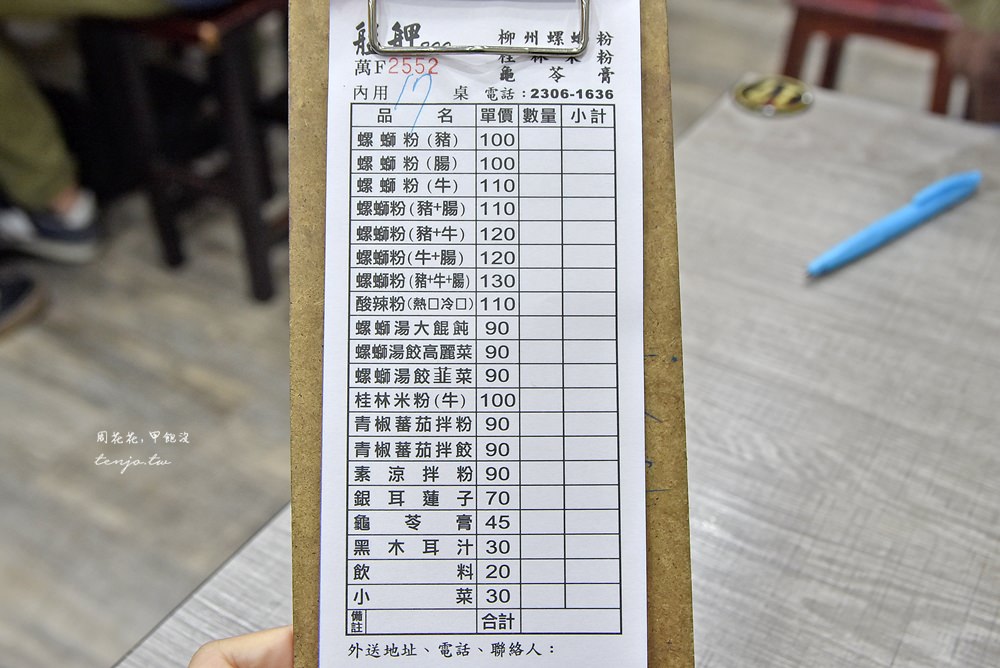 艋舺
柳州螺螄粉
桂林米粉
龜苓膏
萬F2552
內用 17 桌 電話：2306-1636
品名 單價 數量 小計
螺螄粉(豬) 100
螺螄粉(腸) 100
螺螄粉(牛) 110
螺螄粉(豬+腸) 110
螺螄粉(豬+牛) 120
螺螄粉(牛+腸) 120
螺螄粉(豬+牛+腸) 130
酸辣粉(熱□冷□) 110
螺螄湯大餛飩 90
螺螄湯餃高麗菜 90
螺螄湯餃韮菜 90
桂林米粉(牛) 100
青椒蕃茄拌粉 90
青椒蕃茄拌餃 90
素涼拌粉 90
銀耳蓮子 70
龜苓膏 45
黑木耳汁 30
飲料 20
小菜 30
備註 合計
外送地址、電話、聯絡人：
周花花，甲飽沒
tenjo.tw